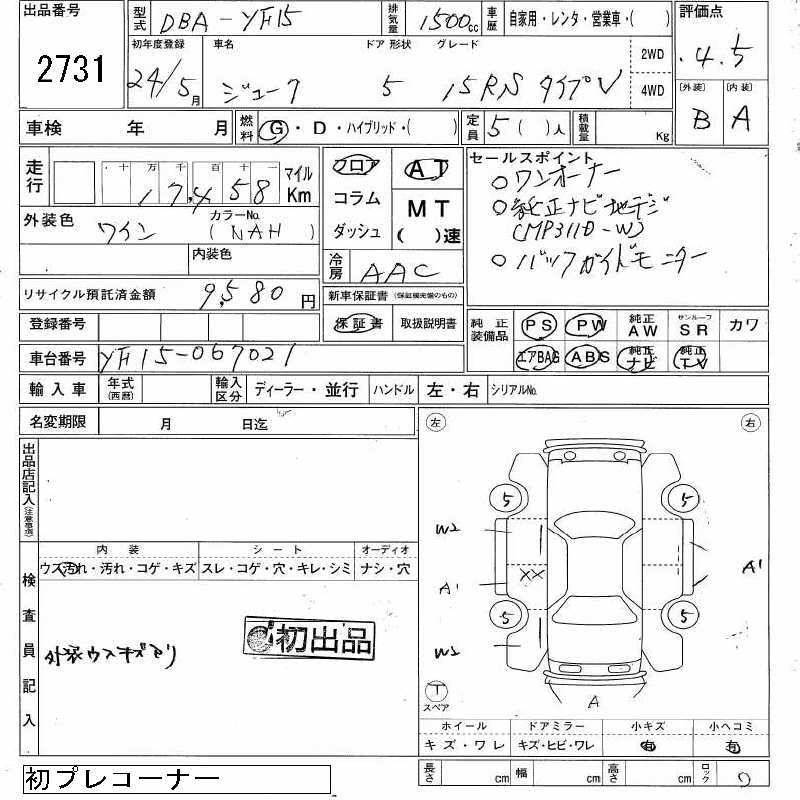 出品番号 2731
型式 DBA-YF15 排気量 1500cc 車歴 自家用・レンタ・営業車・( )
評価点 4.5
初年度登録 24/5月 車名 ジューク ドア 形状 5 グレード 15RS タイプV 2WD 4WD
[外装] B [内装] A
車検 年 月 燃料 G・D・ハイブリッド・( ) 定員 5( )人 積載量 Kg
走行 十 万 千 百 十 一 17,458 マイル Km
外装色 ワイン カラーNo. (NAH)
内装色
フロア コラム ダッシュ
AT MT ( )速
冷房 AAC
セールスポイント
○ワンオーナー
○純正ナビ地デジ
(MP311D-W)
○バックガイドモニター
リサイクル預託済金額 9,580円
新車保証書 (保証継完備のもの)
保証書 取扱説明書
登録番号
車台番号 YF15-067021
純正装備品 PS PW 純正AW サンルーフSR カワ
エアBAG ABS 純正ナビ 純正TV
輸入車 年式(西暦) 輸入区分 ディーラー・並行 ハンドル 左・右 シリアルNo.
名変期限 月 日迄
左 右
出品店記入(注意事項)
内装 シート オーディオ
ウス汚れ・汚れ・コゲ・キズ スレ・コゲ・穴・キレ・シミ ナシ・穴
検査員記入
外装ウスキズあり
初出品
5 5
W2
XX
A1 A1
5 5
W2
T スペア
A
ホイール ドアミラー 小キズ 小ヘコミ
キズ・ワレ キズ・ヒビ・ワレ 有 有
長さ cm 幅 cm 高さ cm ロック
初プレコーナー